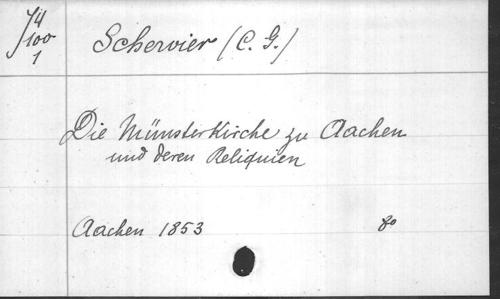 Schervier (C. G.)
Die Münsterkirche zu Aachen
und deren Reliquien
Aachen 1853 8o